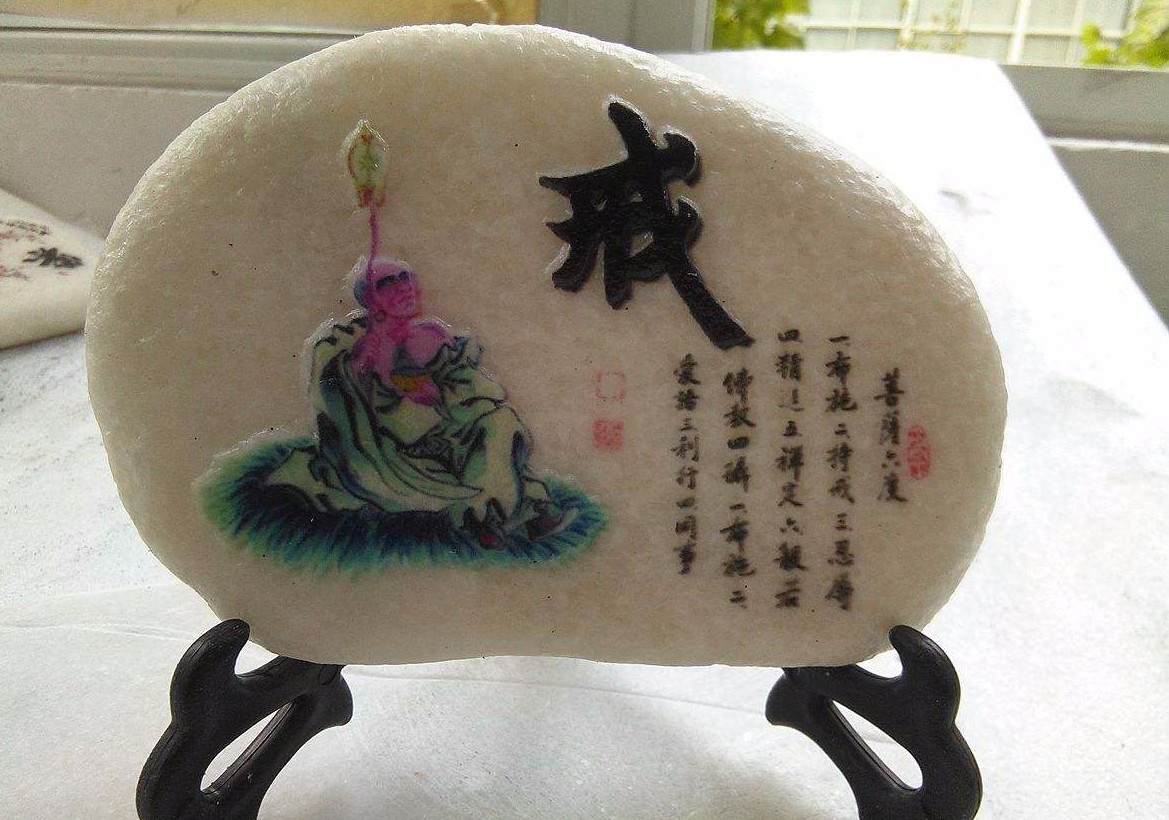 戒
菩薩六度
一布施二持戒三忍辱
四精進五禅定六般若
佛教四攝一布施二
爱語三利行四同事